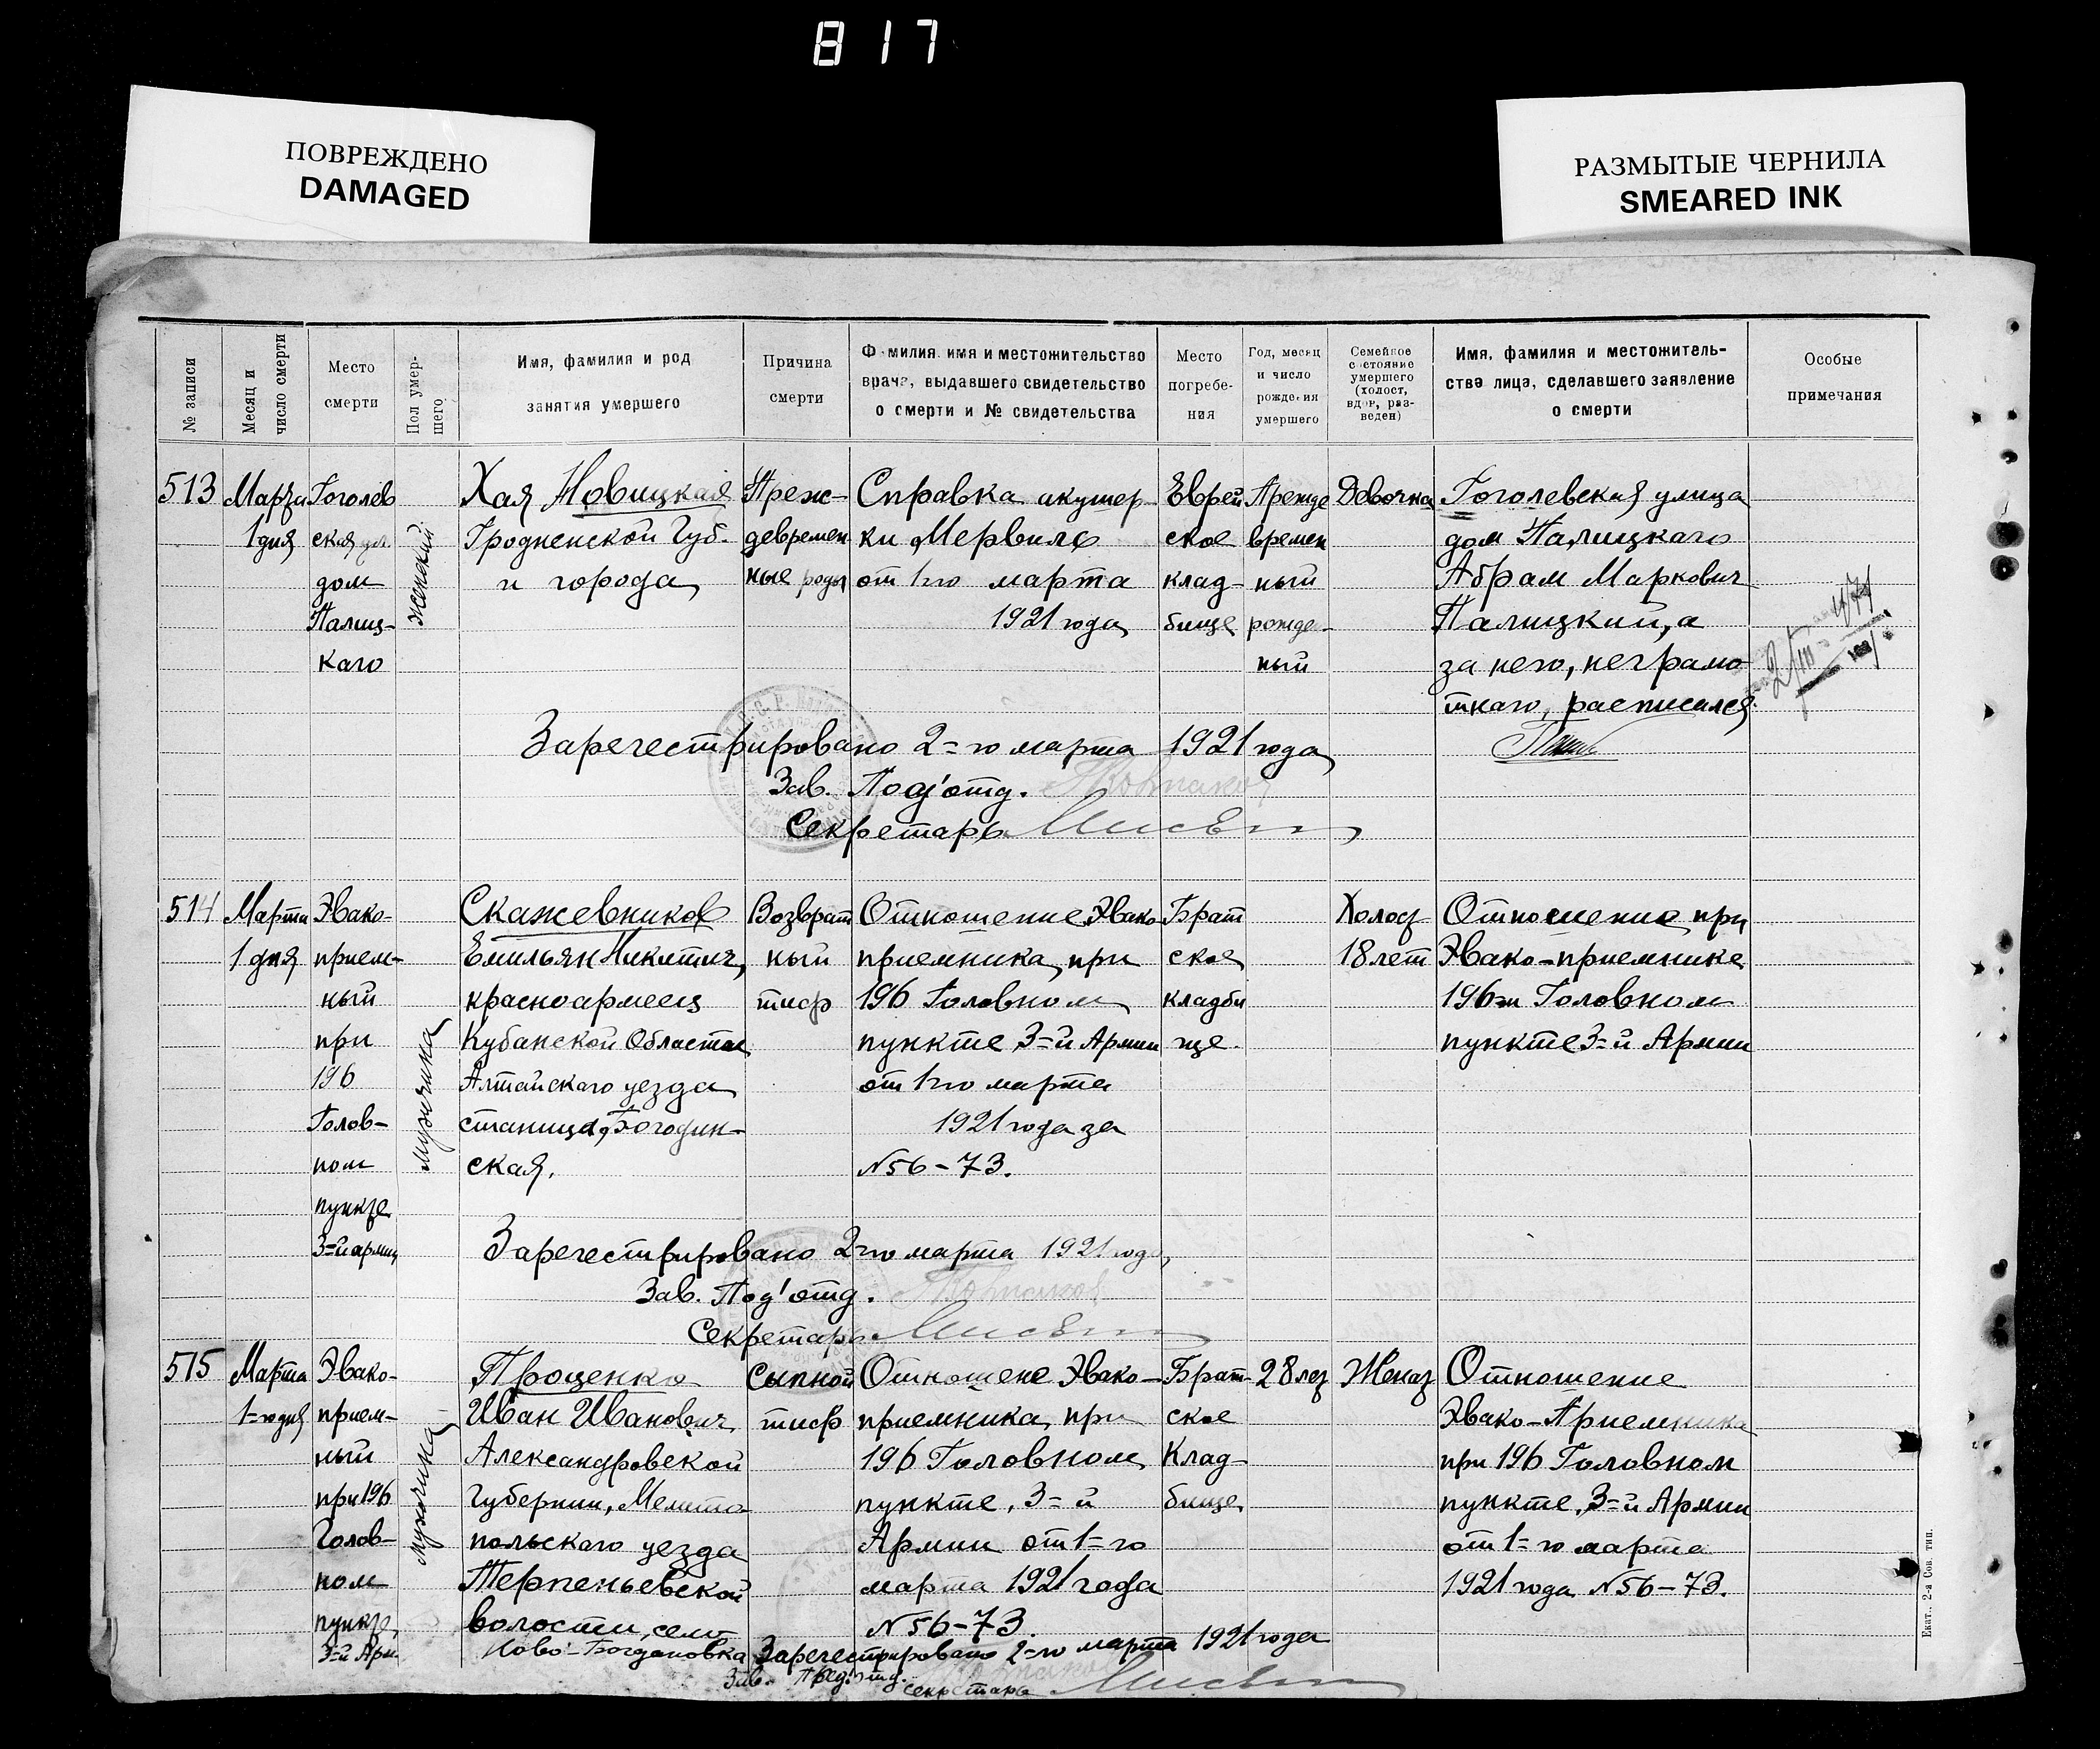 817
ПОВРЕЖДЕНО
DAMAGED
РАЗМЫТЫЕ ЧЕРНИЛА
SMEARED INK
№ записи
Месяц и
число смерти
Место
смерти
Пол умер-
шего
Имя, фамилия и род
занятия умершего
Причина
смерти
Фамилия, имя и местожительство
врача, выдавшего свидетельство
о смерти и № свидетельства
Место
погребе-
ния
Год, месяц
и число
рождения
умершего
Семейное
состояние
умершего
(холост,
вдов, раз-
веден)
Имя, фамилия и местожитель-
ство лица, сделавшего заявление
о смерти
Особые
примечания
513
Марта
1 дня
Гоголев
ская ул.
дом
Палиц-
каго
женский
Хая Новицкая
Гродненской Губ.
и города
Преж-
девремен
ные роды
Справка акушер
ки
от 1го марта
1921 года
Еврей
ское
клад-
бище
Прежде
времен
ный
рожде-
ный
Девочка
Гоголевская улица
дом Палицкаго
Абрам Маркович
Палицкий, а
за него, неграмо
тнаго, расписался
Зарегестрировано 2=го марта 1921 года
Зав. Под'отд.
Секретарь
514
Марта
1 дня
Эвако-
прием-
ный
при
196
Голов-
ном
пункте
3=й армии
мужчина
Скажевников
Емильян Никитич,
красноармеец
Кубанской Области
Алтайскаго уезда
станица
ская.
Возврат
ный
тиф
Отношение Эвако
приемника при
196 Головном
пункте 3=й Армии
от 1го марта
1921 года за
№56-73.
Брат
ское
кладби
ще.
Холост
18 лет
Отношение при
Эвако-приемнике
196м Головном
пункте 3=й Армии
Зарегестрировано 2го марта 1921 года
Зав. Под'отд.
Секретарь
515
Марта
1=го дня
Эвако-
прием-
ный
при 196
Голов-
ном
пункте
3=й Арм
мужчина
Проценко
Иван Иванович
Александровской
Губернии, Мелито
польского уезда
Терпеньевской
волости, село
Ново-Богдановка
Сыпной
тиф
Отношене Эвако-
приемника при
196 Головном
пункте, 3=й
Армии от 1=го
марта 1921 года
№56-73.
Брат-
ское
Клад-
бище
28 лет
Женат
Отношение
Эвако-Приемника
при 196 Головном
пункте, 3=й Армии
от 1=го марта
1921 года №56-73.
Зарегестрировано 2=го марта 1921 года
Зав. Под'отд.
секретарь
Екат., 2-я Сов. тип.